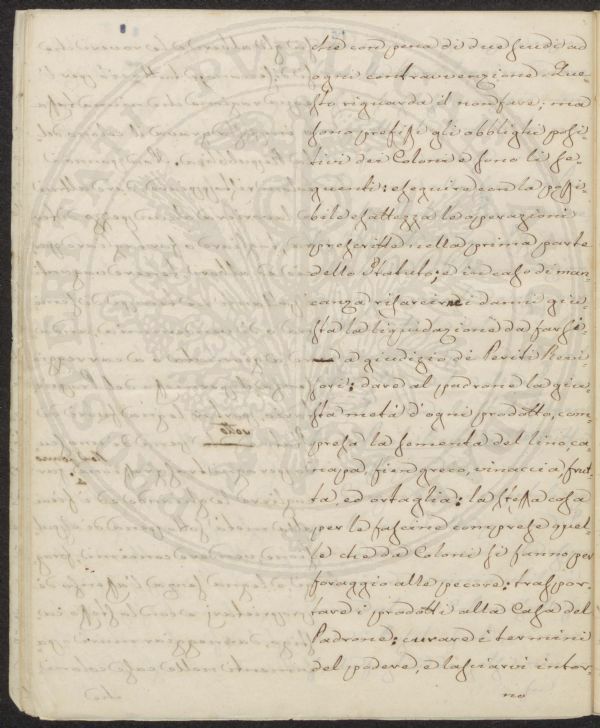 che con pena di due scudi ad
ogni contravvenzione. Que-
sto riguarda il non fare; ma
sono prefissi gli obblighi posi-
tivi dei Coloni e sono li se-
guenti: eseguire con la possi-
bile esattezza le operazioni
prescritte nella prima parte
dello Statuto; e in caso di man-
canza risarcirne i danni giu-
sta la liquidazione da farsi
a giudizio de' Periti
: dare al padrone la giu-
sta metà d'ogni prodotto, com-
presa la sementa del lino, ca-
napa, fien greco, vinaccia, frut-
ta, ed ortaglia: la stessa cosa
per le fascine comprese quel-
le che da Coloni si fanno per
foraggio alle pecore: traspor-
tare i prodotti alla Casa del
Padrone: curare i termini
del podere, e lasciarvi intor-
no